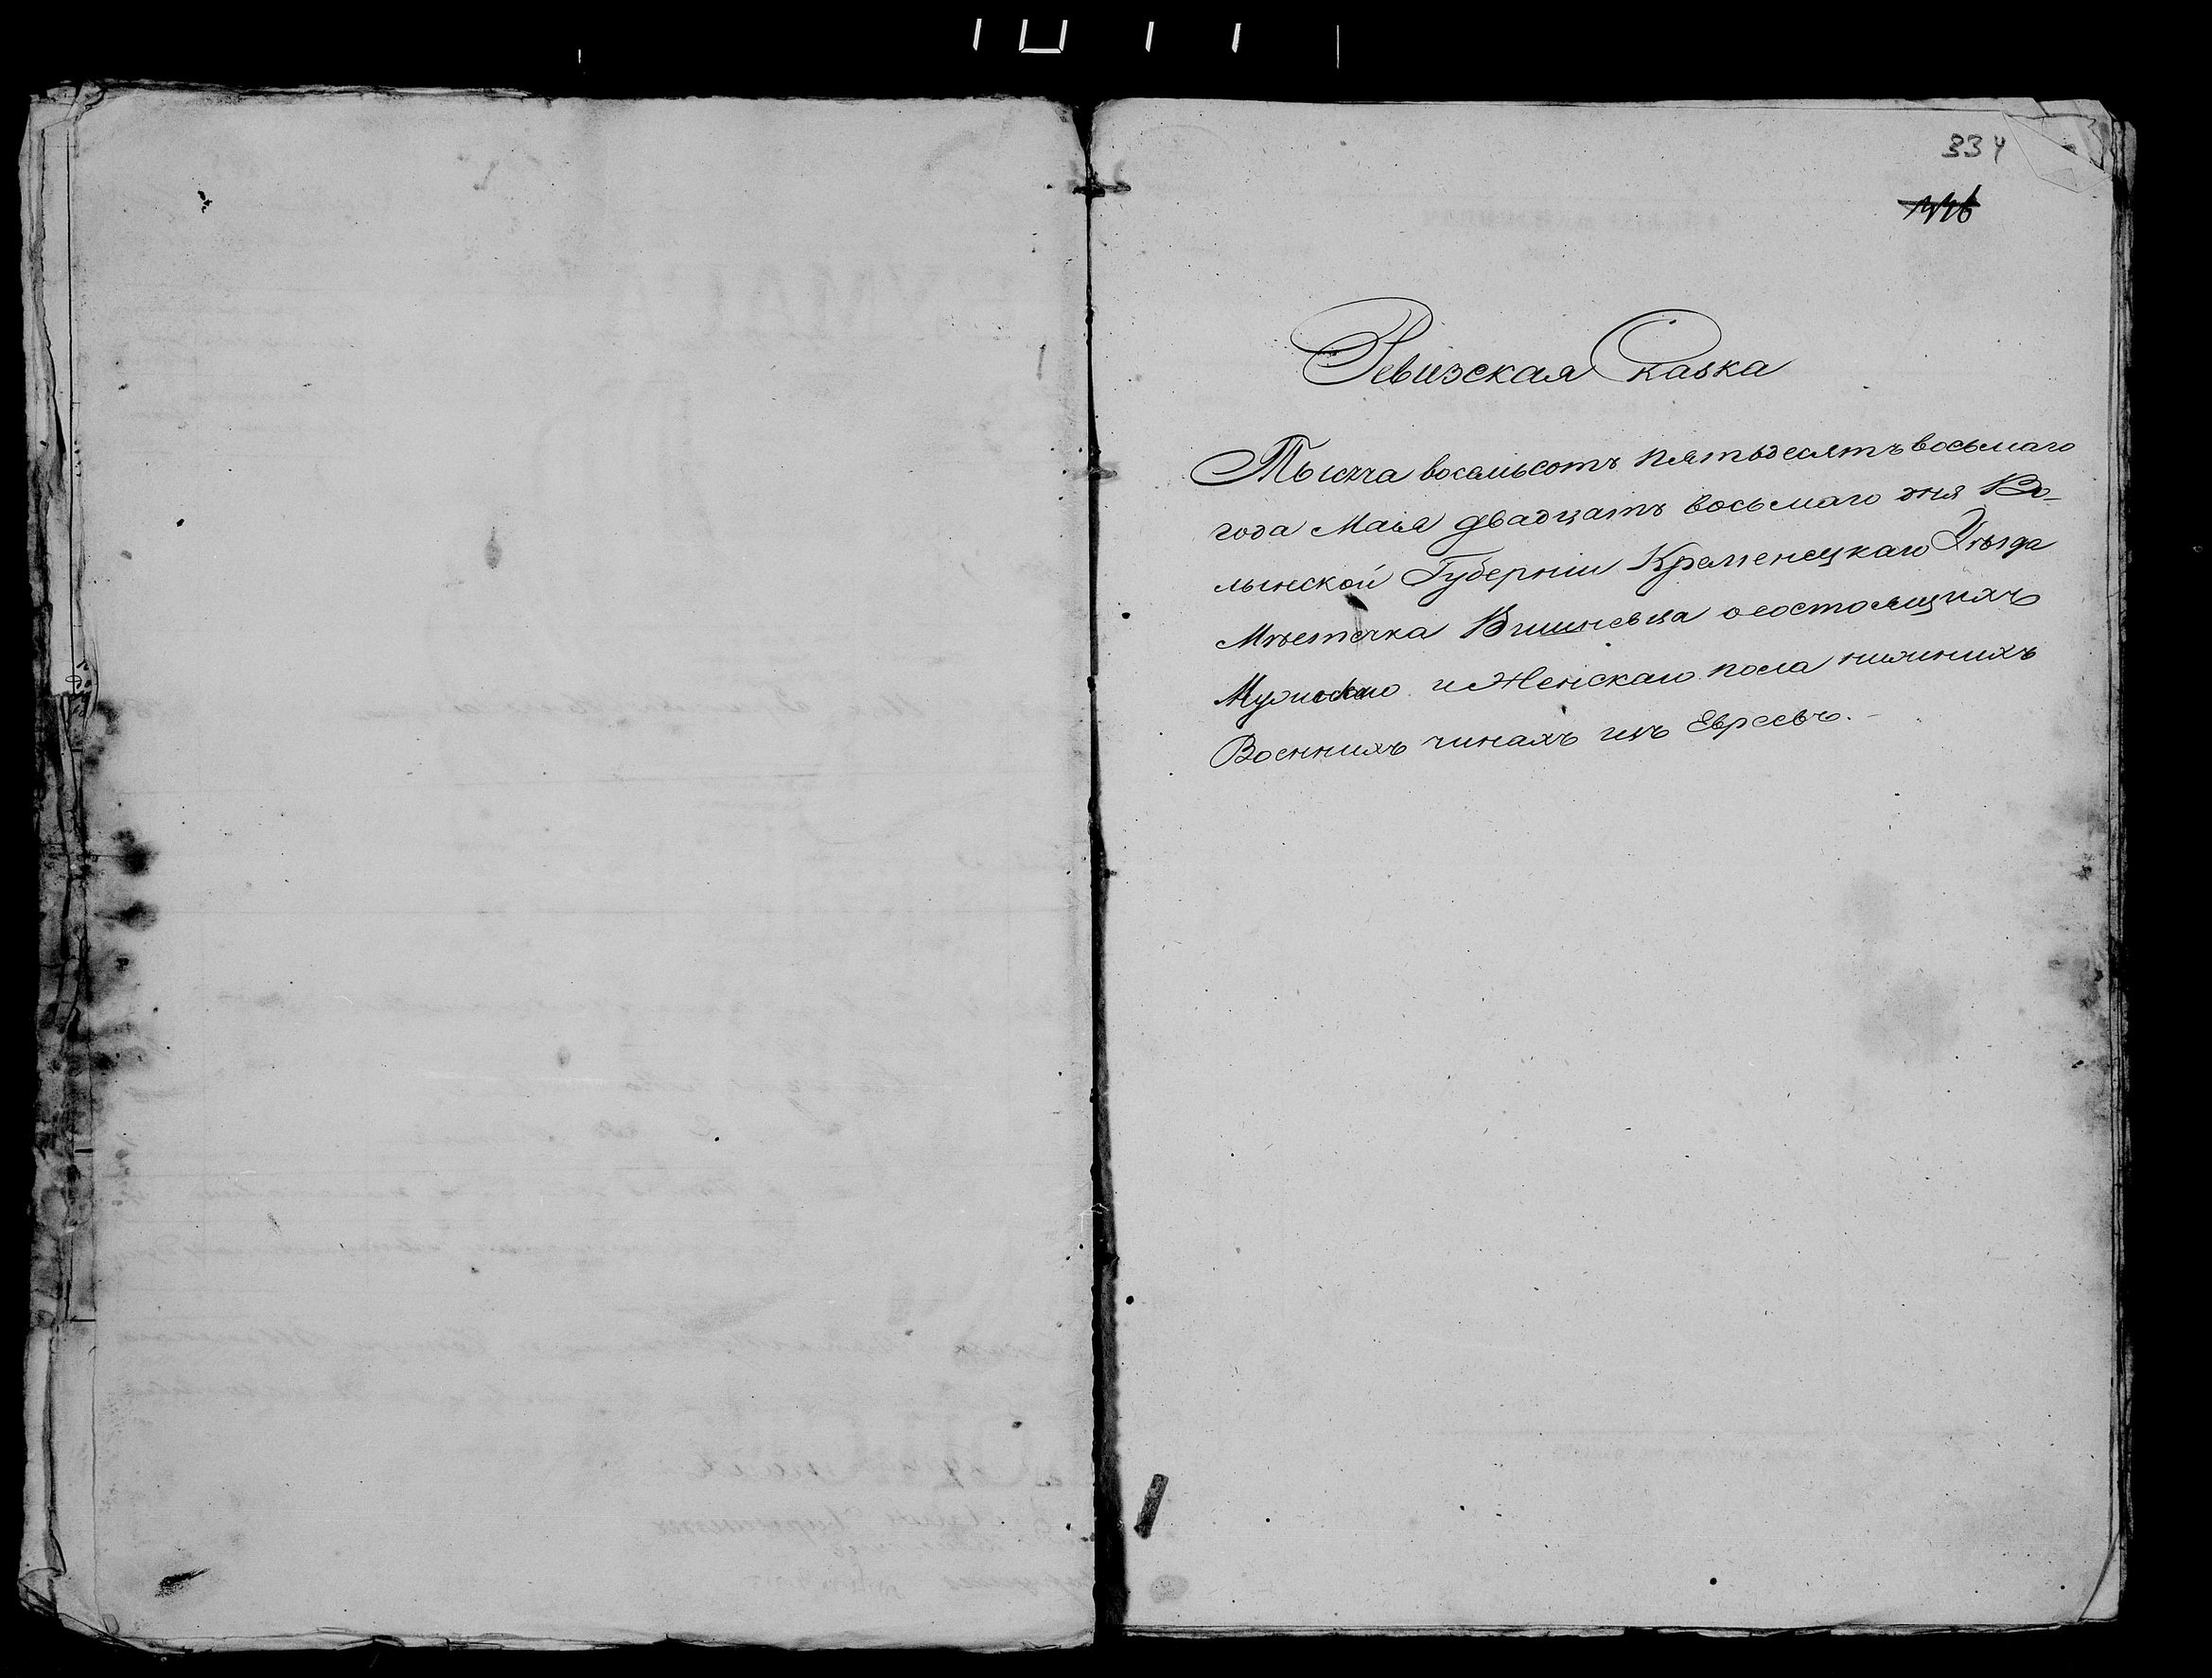 334
446
Ревизская Сказка
Тысяча восемьсотъ пятьдесятъ восьмаго
года Маія двадцать восьмаго дня Во-
лынской Губерніи Кременецкаго Уѣзда
Мѣстечка Вишневца о состоящихъ
Мужискаго и Женскаго пола нижнихъ
Военнихъ чинахъ изъ Евреевъ.-